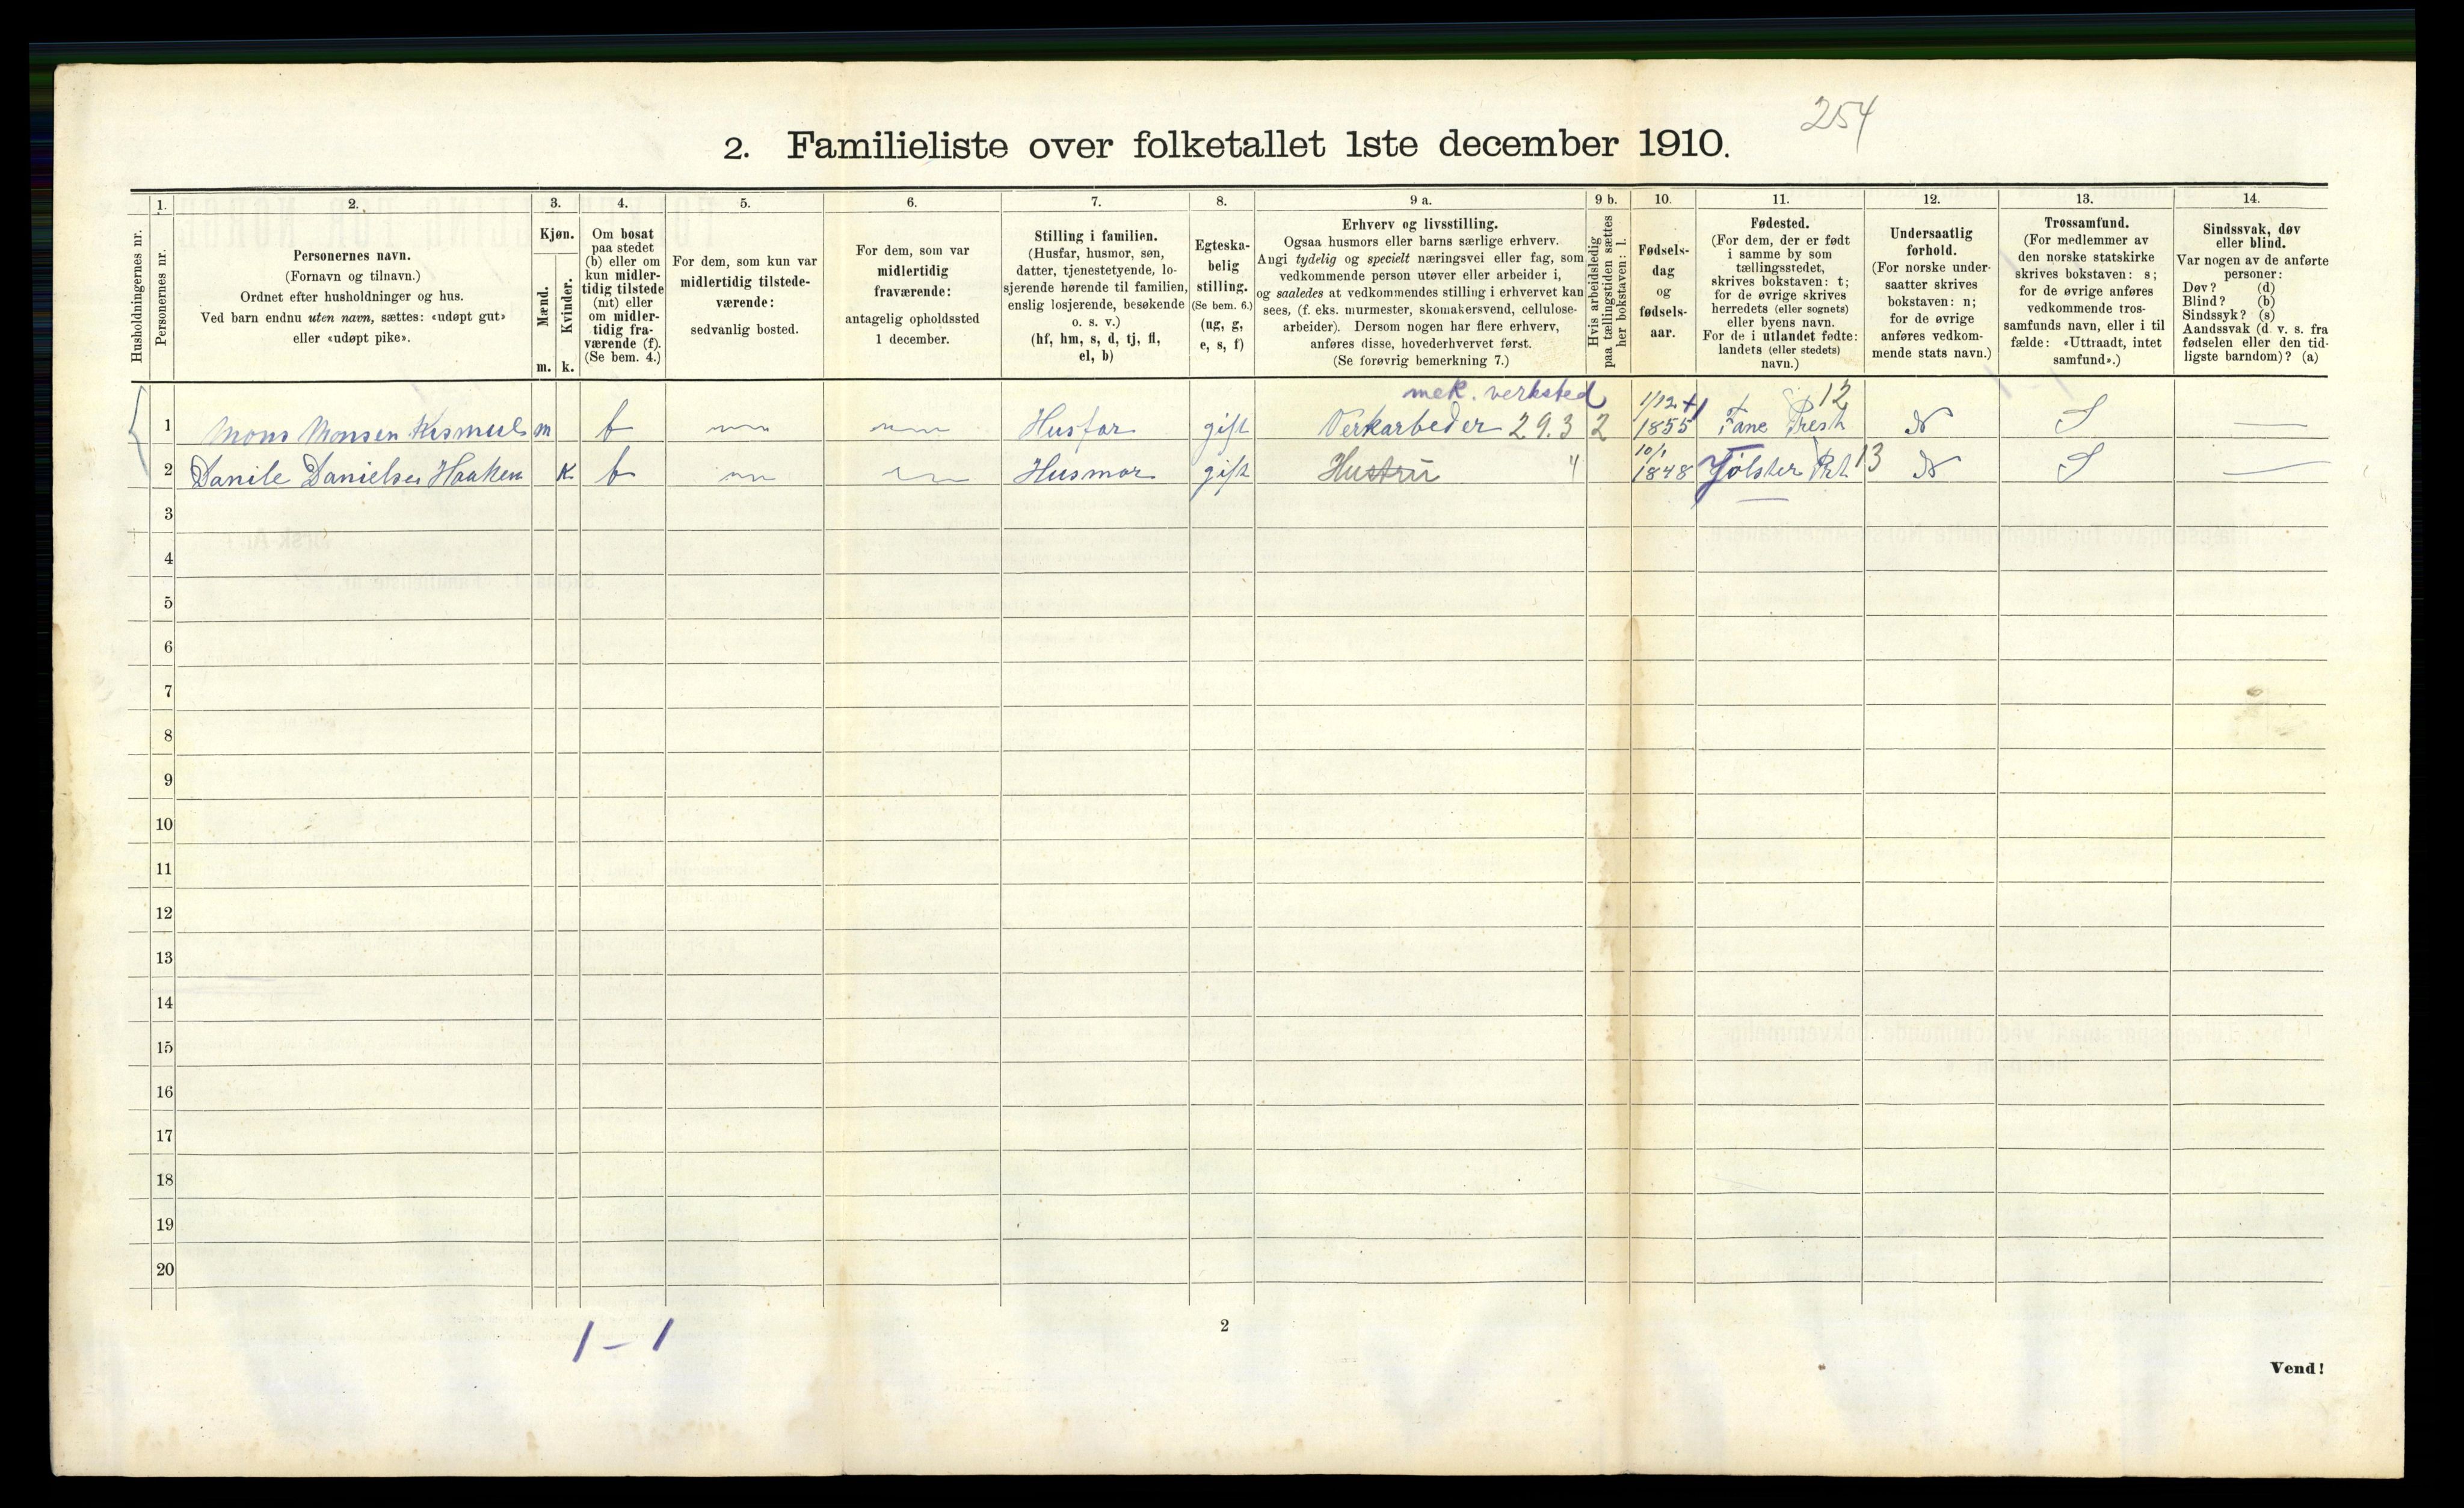 254
2. Familieliste over folketallet 1ste december 1910.
1. 2. 3. 4. 5. 6. 7. 8. 9 a. 9 b. 10. 11. 12. 13. 14.
Husholdningernes nr.
Personernes nr.
Personernes navn.
(Fornavn og tilnavn.)
Ordnet efter husholdninger og hus.
Ved barn endnu uten navn, sættes: «udøpt gut»
eller «udøpt pike».
Kjøn.
Mænd.
Kvinder.
m. k.
Om bosat
paa stedet
(b) eller om
kun midler-
tidig tilstede
(mt) eller
om midler-
tidig fra-
værende (f).
(Se bem. 4.)
For dem, som kun var
midlertidig tilstede-
værende:
sedvanlig bosted.
For dem, som var
midlertidig
fraværende:
antagelig opholdssted
1 december.
Stilling i familien.
(Husfar, husmor, søn,
datter, tjenestetyende, lo-
sjerende hørende til familien,
enslig losjerende, besøkende
o. s. v.)
(hf, hm, s, d, tj, fl,
el, b)
Egteska-
belig
stilling.
(Se bem. 6.)
(ug, g,
e, s, f)
Erhverv og livsstilling.
Ogsaa husmors eller barns særlige erhverv.
Angi tydelig og specielt næringsvei eller fag, som
vedkommende person utøver eller arbeider i,
og saaledes at vedkommendes stilling i erhvervet kan
sees, (f. eks. murmester, skomakersvend, cellulose-
arbeider). Dersom nogen har flere erhverv,
anføres disse, hovederhvervet først.
(Se forøvrig bemerkning 7.)
Hvis arbeidsledig
paa tællingstiden sættes
her bokstaven: l.
Fødsels-
dag
og
fødsels-
aar.
Fødested.
(For dem, der er født
i samme by som
tællingsstedet,
skrives bokstaven: t;
for de øvrige skrives
herredets (eller sognets)
eller byens navn.
For de i utlandet fødte:
landets (eller stedets)
navn.)
Undersaatlig
forhold.
(For norske under-
saatter skrives
bokstaven: n;
for de øvrige
anføres vedkom-
mende stats navn.)
Trossamfund.
(For medlemmer av
den norske statskirke
skrives bokstaven: s;
for de øvrige anføres
vedkommende tros-
samfunds navn, eller i til
fælde: «Uttraadt, intet
samfund».)
Sindssvak, døv
eller blind.
Var nogen av de anførte
personer:
Døv? (d)
Blind? (b)
Sindssyk? (s)
Aandssvak (d. v. s. fra
fødselen eller den tid-
ligste barndom)? (a)
mek. verksted
1 Mons Monsen Kismul m b Husfar gift Verkarbeder 29.3 2 1/12 1855 Fane Prest 12 N S —
2 Danile Danielsen Haaken K b Husmor gift Hustru " 10/1 1848 Jølster Prt 13 N S —
3
4
5
6
7
8
9
10
11
12
13
14
15
16
17
18
19
20
1-1
2
Vend!